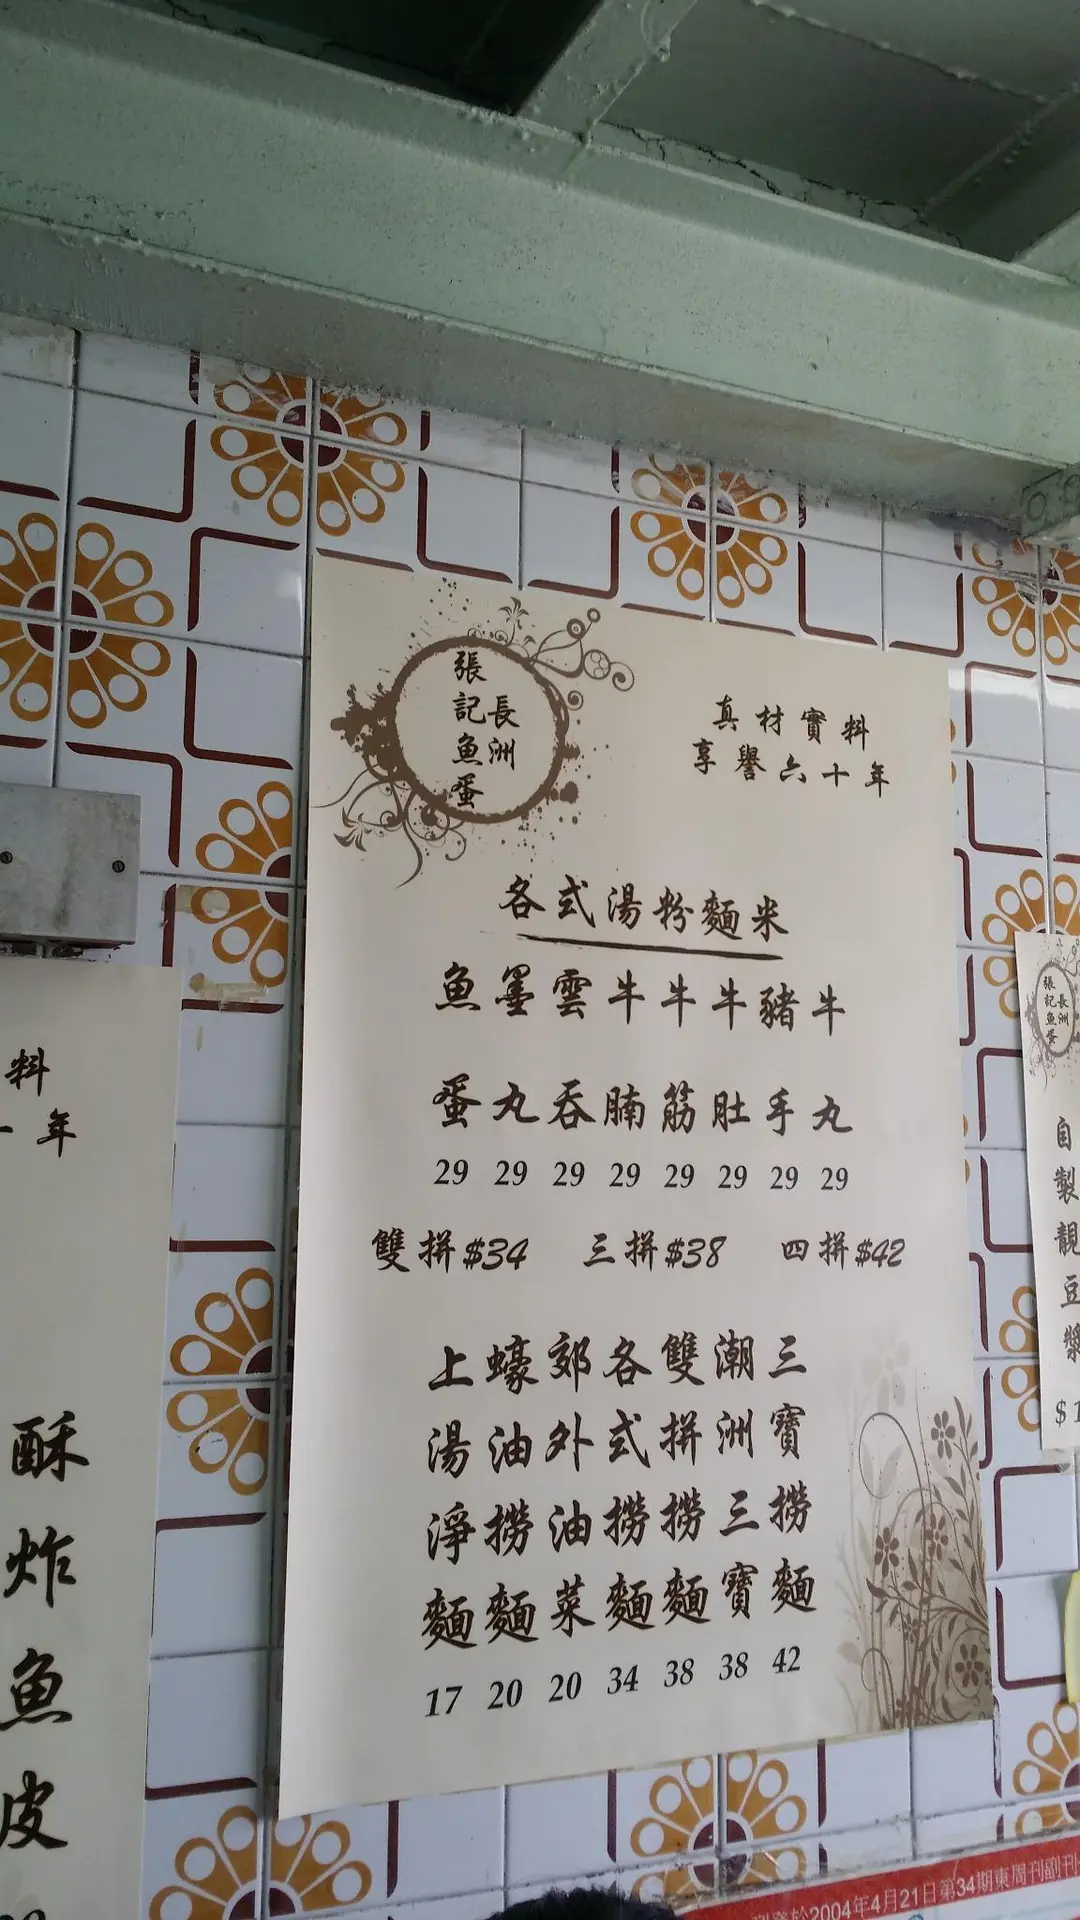 長洲
張記魚蛋
真材實料
享譽六十年
各式湯粉麵米
魚蛋 29
墨丸 29
雲吞 29
牛腩 29
牛筋 29
牛肚 29
豬手 29
牛丸 29
雙拼$34 三拼$38 四拼$42
上湯淨麵 17
蠔油撈麵 20
郊外油菜 20
各式撈麵 34
雙拼撈麵 38
潮洲三寶 38
三寶撈麵 42
料
年
酥炸魚皮
長洲
張記魚蛋
自製靚豆漿
2004年4月21日第34期東周刊副刊